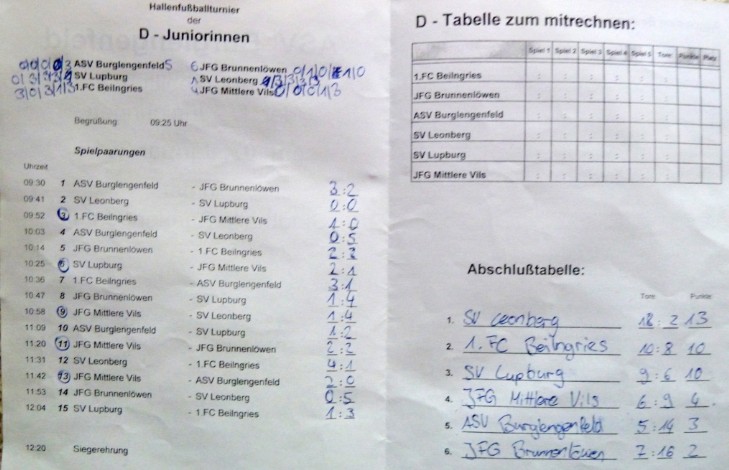 Hallenfußballturnier
der
D - Juniorinnen
ASV Burglengenfeld 5 6 JFG Brunnenlöwen
SV Lupburg SV Leonberg
1.FC Beilngries 4 JFG Mittlere Vils 0/0/0/1/3
Begrüßung: 09:25 Uhr
Spielpaarungen
Uhrzeit
09:30 1 ASV Burglengenfeld - JFG Brunnenlöwen 3:2
09:41 2 SV Leonberg - SV Lupburg 0:0
09:52 3 1.FC Beilngries - JFG Mittlere Vils 1:0
10:03 4 ASV Burglengenfeld - SV Leonberg 0:5
10:14 5 JFG Brunnenlöwen - 1.FC Beilngries 2:2
10:25 6 SV Lupburg - JFG Mittlere Vils 2:1
10:36 7 1.FC Beilngries - ASV Burglengenfeld 3:1
10:47 8 JFG Brunnenlöwen - SV Lupburg 1:4
10:58 9 JFG Mittlere Vils - SV Leonberg 1:4
11:09 10 ASV Burglengenfeld - SV Lupburg 1:2
11:20 11 JFG Mittlere Vils - JFG Brunnenlöwen 2:2
11:31 12 SV Leonberg - 1.FC Beilngries 4:1
11:42 13 JFG Mittlere Vils - ASV Burglengenfeld 2:0
11:53 14 JFG Brunnenlöwen - SV Leonberg 0:5
12:04 15 SV Lupburg - 1.FC Beilngries 1:3
12:20 Siegerehrung
D - Tabelle zum mitrechnen:
Spiel 1 Spiel 2 Spiel 3 Spiel 4 Spiel 5 Tore Punkte Platz
1.FC Beilngries : : : : : :
JFG Brunnenlöwen : : : : : :
ASV Burglengenfeld : : : : : :
SV Leonberg : : : : : :
SV Lupburg : : : : : :
JFG Mittlere Vils : : : : : :
Abschlußtabelle:
Tore Punkte
1. SV Leonberg 18:2 13
2. 1. FC Beilngries 10:8 10
3. SV Lupburg 9:6 10
4. JFG Mittlere Vils 6:9 4
5. ASV Burglengenfeld 5:14 3
6. JFG Brunnenlöwen 7:16 2